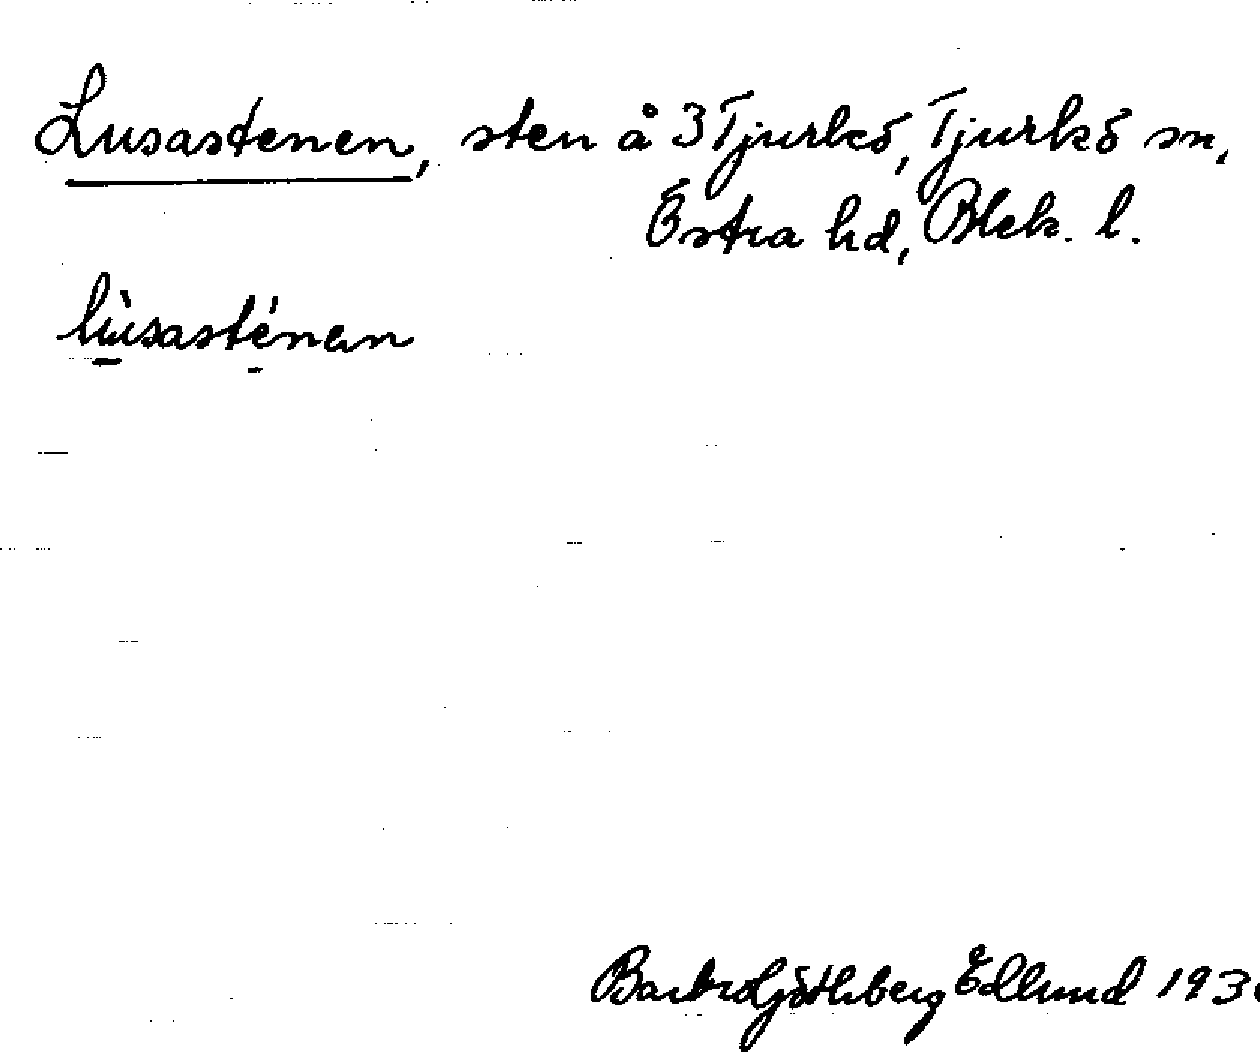 Lusastenen, sten å 3 Tjurkö, Tjurkö sn,
Östra hd, Blek. l.
lùsasténen
Barbro Göthberg Edlund